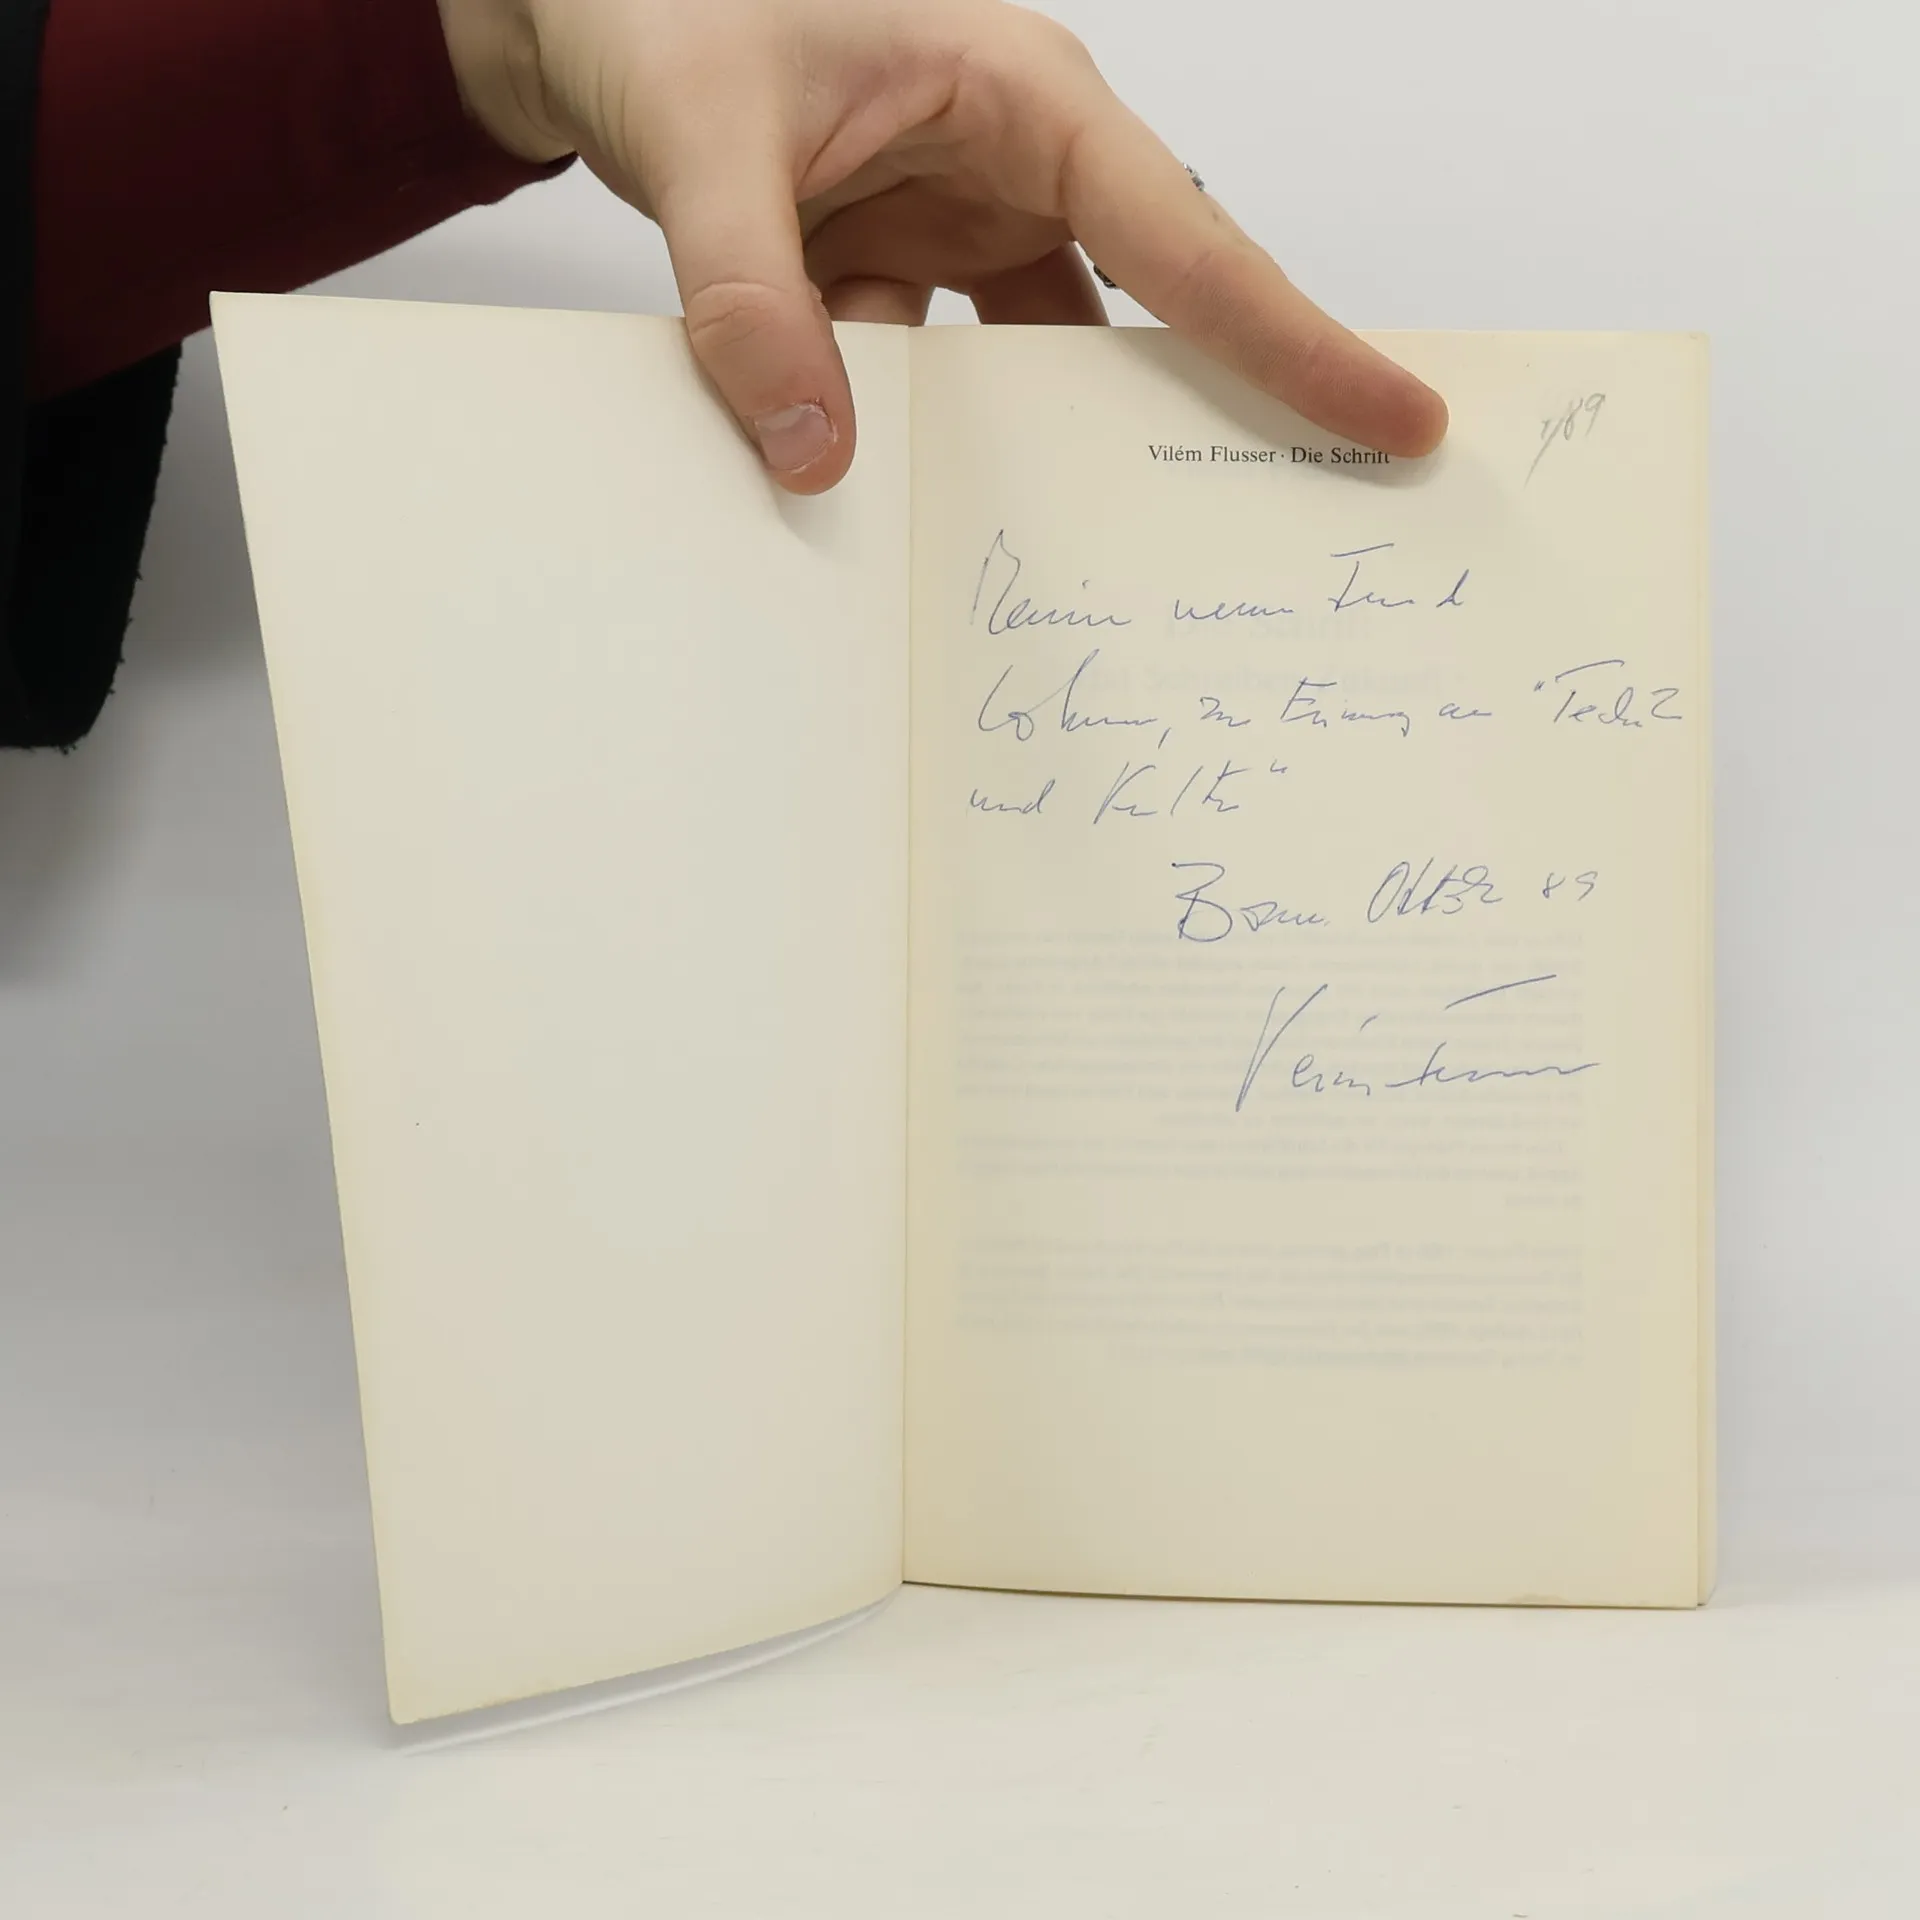 Vilém Flusser · Die Schrift
1/89
Meinem neuen Freund
zur Erinnerung an "Technik
und Kultur"
Bonn. Oktober 89